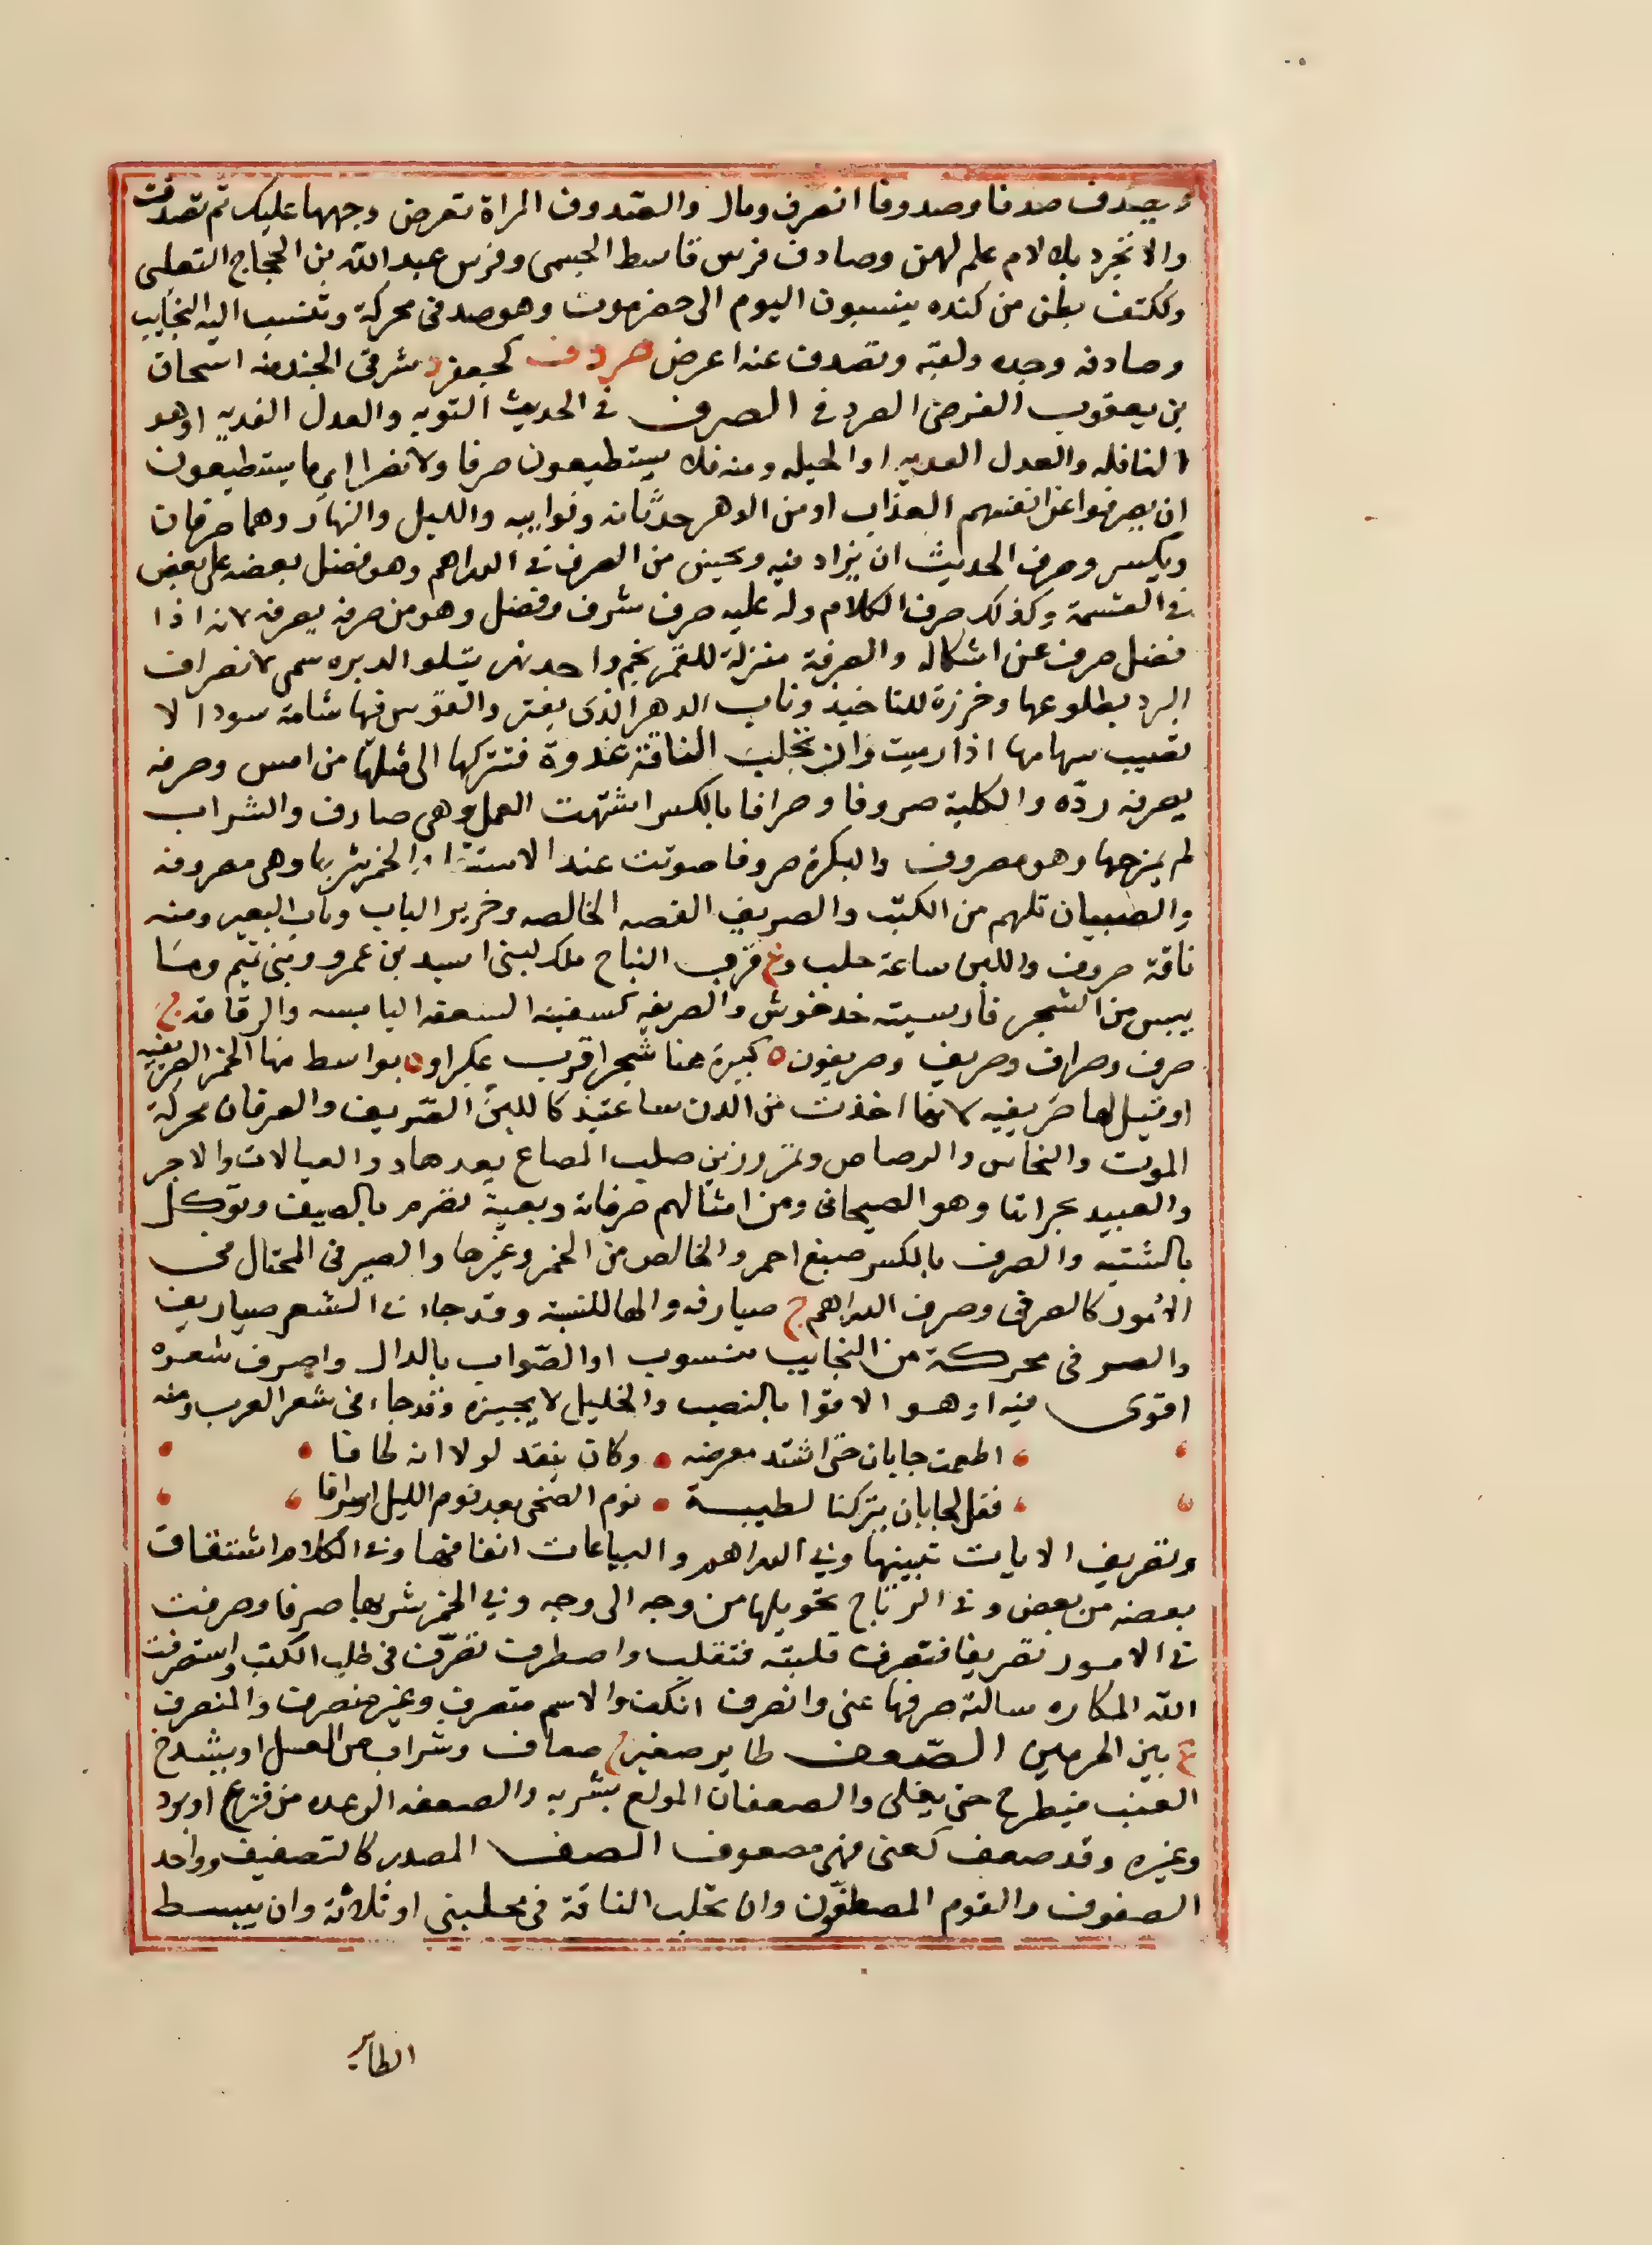 ويصدف صدفا وصدوفا انصرف ومال والصدوف المراة تعرض وجهها عليك ثم تصدف
والابخر وبلا لام علم لهن وصادف فرس قاسط الجسمى وفرس عبد الله بن الحجاج الثعلبى
وككتف بطن من كنده ينسبون اليوم الى حضرموت وهو صدفى محركة وتنسب اليه النجايب
وصادفه وجده ولقيه وتصدف عنه اعرض صردف كجعفر د شرقى الجند منه اسحاق
بن يعقوب الفرضى الصردفى الصرف فى الحديث التوبه والعدل الفديه او هو
النافله والعدل الفريضه او الحيله ومنه فلا يستطيعون صرفا ولا نصرا اى ما يستطيعون
ان يصرفوا عن انفسهم العذاب او من الدهر حدثانه ونوايبه والليل والنهار وهما صرفان
ويكسر وصرف الحديث ان يزاد فيه ويحسن من الصرف فى الدراهم وهو فضل بعضه على بعض
فى القيمة وكذلك صرف الكلام وله عليه صرف شرف وفضل وهو من صرفه يصرفه لانه اذا
فضل صرف عن اشكاله والصرفة منزلة للقمر نجم واحد نير يتلو الدبره سمى لانصراف
البرد بطلوعها وخرزة للتاخيذ وناب الدهر الذى يفتر والقوس فيها شامة سودا لا
تصيب سهامها اذا رميت وان تحلب الناقة غدوة فتتركها الى مثلها من امس وصرفه
يصرفه ردّه والكلبة صروفا وصرافا بالكسر اشتهت الفحل وهى صارف والشراب
لم يمزجها وهو مصروف والبكرة صريفا صوتت عند الاستقاء والخمر شربها وهى مصروفه
والصبيان قلبهم من الكتب والصريف الفضه الخالصه وصرير الباب وناب البعير ومنه
ناقة صروف واللبن ساعة حلب وع قرب النباح ملك لبنى اسيد بن عمرو بن تميم وما
يبس من الشجر فارسيته خدخوش والصريفه كسفينه السعفه اليابسه والرقاقه ج
صرف وصراف وصريف وصريفون ة كبيرة غنا شجرا قرب عكبرا و ة بواسط منها الخمر الصريفيه
او قيل لها صريفيه لانها اخذت من الدن ساعتئذ كاللبن الصريف والصرفان محركة
الموت والنحاس والرصاص وتمر رزين صلب المضاغ يعدها ذوو العيالات والاجر
والعبيد لجزائها وهو الصيحانى ومن امثالهم صرفانة ربعية تصرم بالصيف وتوكل
بالشتيه والصرف بالكسر صبغ احمر والخالص من الخمر وغيرها والصيرفى المحتال فى
الامور كالصيرفى وصرف الدراهم ج صيارفه والها للنسبة وقد جاء فى الشعر صياريف
والصرفى محركة من النجايب منسوب او الصواب بالدال واصرف شعره
اقوى فيه او هو الاقوا بالنصب والخليل لا يجيزه وقد جاء فى شعر العرب ومنه
اطعمت جابان حتى اشتد معرضه وكان ينقد لولا انه طافا
فقل لجابان يتركنا لطيبته نوم الضحى بعد نوم الليل اسرافا
وتصريف الايات تبيينها وفى الدراهم والبياعات انفاقها وفى الكلام اشتقاق
بعضه من بعض وفى الرياح تحويلها من وجه الى وجه وفى الخمر شربها صرفا وصرفته
فى الامور تصريفا فتصرف قلبته فتقلب واصطرف تصرف فى طلب الكسب واستصرفت
الله المكاره سالته صرفها عنى وانصرف انكف والاسم منصرف وغير منصرف والمنصرف
ع بين الحرمين الصعف طاير صغير ج صعاف وشراب من العسل او يشدخ
العنب فيطرح حتى يغلى والصعفان المولع بشربه والصعفه الرعده من فزع او برد
وغيره وقد صعف كعنى فهو مصعوف الصف المصدر كالتصفيف وواحد
الصفوف والقوم المصطفون وان تحلب الناقة فى محلبين او ثلاثة وان يبسط
الطاير